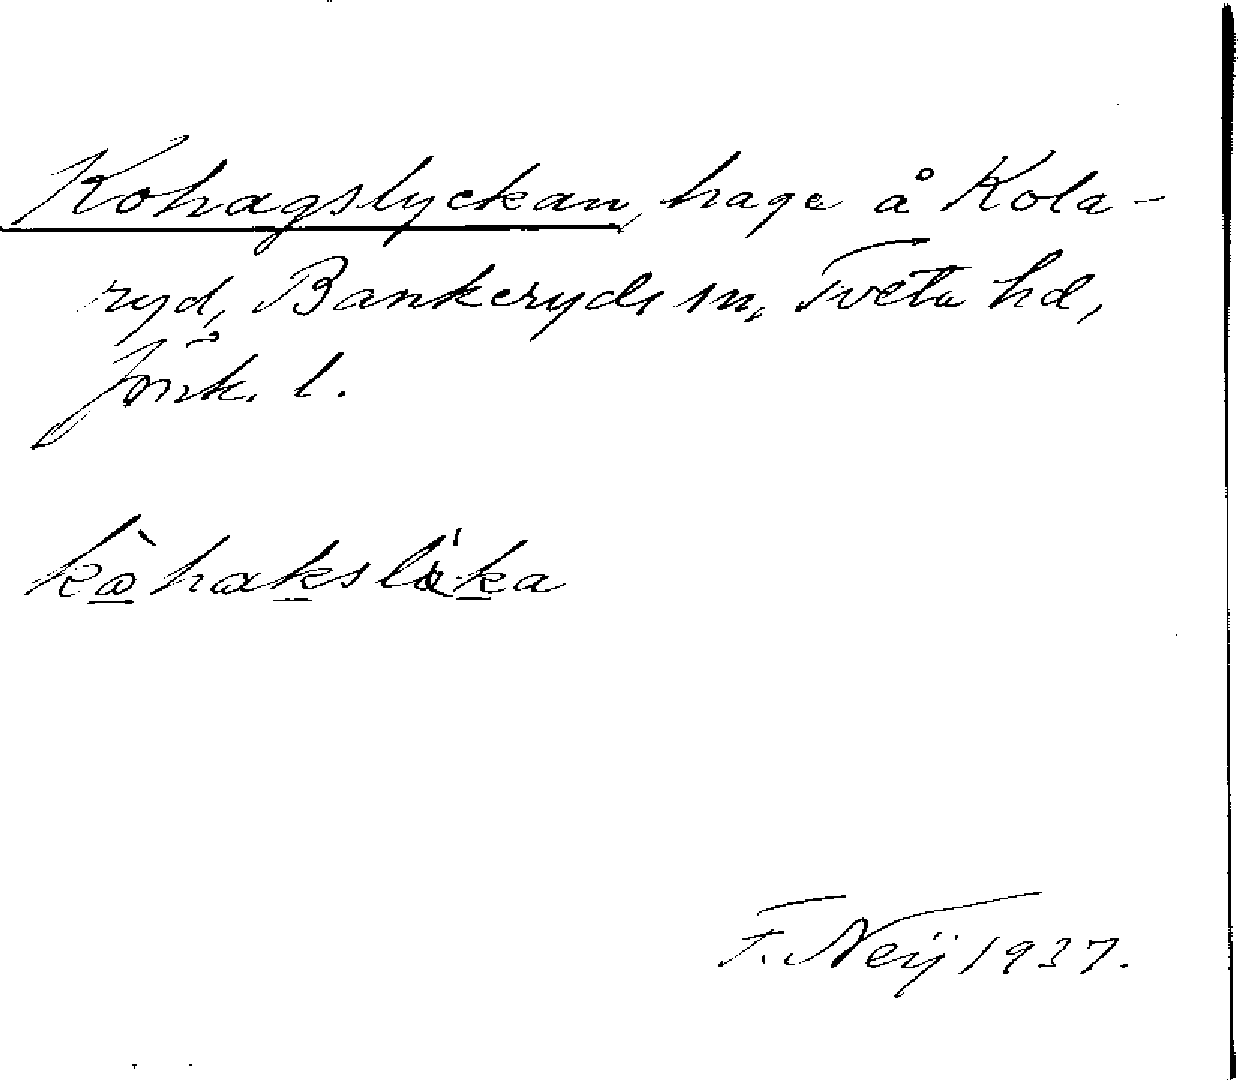 Kohagslyckan, hage å Kola-
ryd, Bankeryds sn, Tveta hd,
Jönk. l.
kòhakslö́ka
F. Neij 1937.